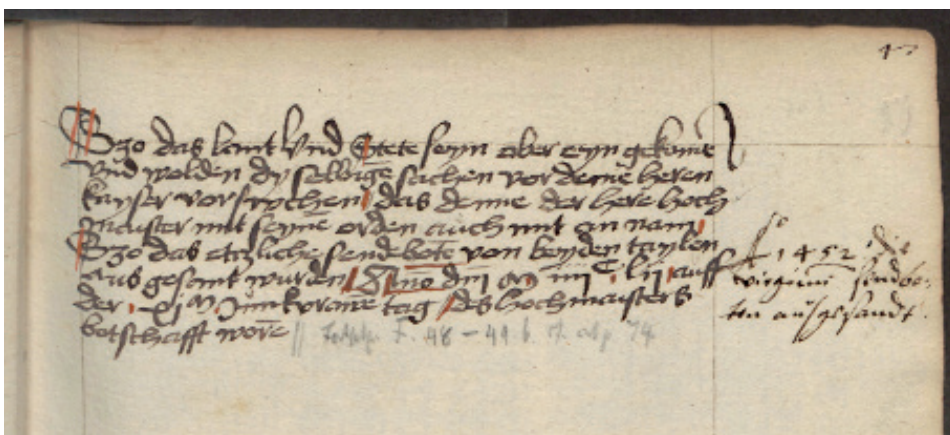 Szo das lant Vnd Stete seyn ober eyn gekome
Vnd wolden dy selbige sachen vor deme heren
kayser vorsuchen das denne der here hoch
maister mit seyne orden auch mit an nam
Szo das etzliche sendebote von beyden taylen
aus gesant wurden Anno dni m iiii c lii auff
der xi m Junkfrawe tag des hochmaisters
botschafft wore
1452 die
virginum sendbo-
ten ausgesandt.
F. 48 - 49 b.